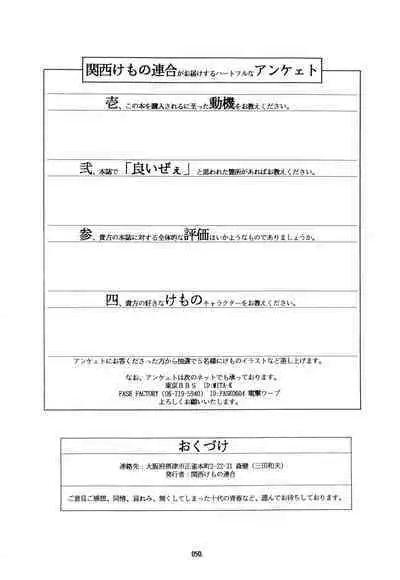 関西けもの連合がお届けするハートフルなアンケェト
壱、この本を購入されるに至った動機をお教えください。
弐、本誌で「良いぜぇ」と思われた箇所があればお教えください。
参、貴方の本誌に対する全体的な評価はいかようなものでありましょうか。
四、貴方の好きなけものキャラクターをお教えください。
アンケェトにお答えくださった方から抽選で5名様にけものイラストなど差し上げます。
なお、アンケェトは次のネットでも承っております。
東京BBS ID:MITA-K
FASE FACTORY (06-719-5940) ID:FASE0604 電撃ワープ
よろしくお願いいたします。
おくづけ
連絡先:大阪府摂津市正雀本町2-22-31 森健(三田和夫)
発行者:関西けもの連合
ご意見ご感想、同情、哀れみ、無くしてしまった十代の青春など、謹んでお待ちしております。
050.